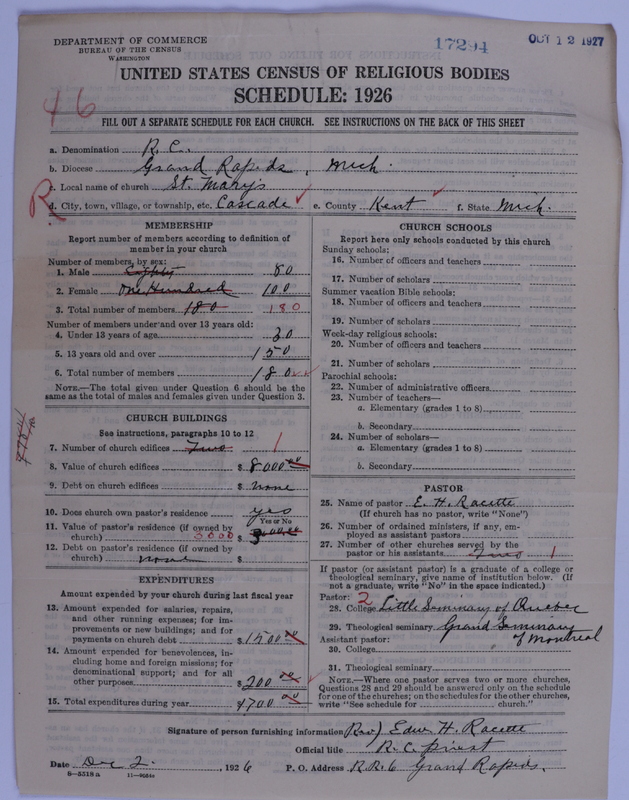 DEPARTMENT OF COMMERCE
BUREAU OF THE CENSUS
WASHINGTON
17294
OCT 12 1927
UNITED STATES CENSUS OF RELIGIOUS BODIES
SCHEDULE: 1926
46
FILL OUT A SEPARATE SCHEDULE FOR EACH CHURCH. SEE INSTRUCTIONS ON THE BACK OF THIS SHEET
a. Denomination R. C.
b. Diocese Grand Rapids, Mich.
c. Local name of church St. Mary's
R
d. City, town, village, or township, etc. Cascade e. County Kent f. State Mich.
MEMBERSHIP
Report number of members according to definition of member in your church
Number of members, by sex:
1. Male Eighty 80
2. Female One Hundred 100
3. Total number of members 180 180
Number of members under and over 13 years old:
4. Under 13 years of age 30
5. 13 years old and over 150
6. Total number of members 180
NOTE.—The total given under Question 6 should be the
same as the total of males and females given under Question 3.
CHURCH BUILDINGS
See instructions, paragraphs 10 to 12
7. Number of church edifices Two 1
8. Value of church edifices $ 8000 00
9. Debt on church edifices $ none
10. Does church own pastor's residence yes
Yes or No
11. Value of pastor's residence (if owned by
church) 3000 $
12. Debt on pastor's residence (if owned by
church) none $
EXPENDITURES
Amount expended by your church during last fiscal year
13. Amount expended for salaries, repairs,
and other running expenses; for im-
provements or new buildings; and for
payments on church debt $ 1500 00
14. Amount expended for benevolences, in-
cluding home and foreign missions; for
denominational support; and for all
other purposes $ 200 00
15. Total expenditures during year 1700 00
CHURCH SCHOOLS
Report here only schools conducted by this church
Sunday schools:
16. Number of officers and teachers
17. Number of scholars
Summer vacation Bible schools:
18. Number of officers and teachers
19. Number of scholars
Week-day religious schools:
20. Number of officers and teachers
21. Number of scholars
Parochial schools:
22. Number of administrative officers
23. Number of teachers—
a. Elementary (grades 1 to 8)
b. Secondary
24. Number of scholars—
a. Elementary (grades 1 to 8)
b. Secondary
PASTOR
25. Name of pastor E. H. Racette
(If church has no pastor, write "None")
26. Number of ordained ministers, if any, em-
ployed as assistant pastors
27. Number of other churches served by the
pastor or his assistants Two 1
If pastor (or assistant pastor) is a graduate of a college or
theological seminary, give name of institution below. (If
not a graduate, write "No" in the space indicated.)
Pastor: 2
28. College Little Seminary of Quebec
29. Theological seminary Grand Seminary
of Montreal
Assistant pastor:
30. College
31. Theological seminary
NOTE.—Where one pastor serves two or more churches,
Questions 28 and 29 should be answered only on the schedule
for one of the churches; on the schedules for the other churches,
write "See schedule for church."
Signature of person furnishing information Rev) Edw. H. Racette
Official title R. C. priest
Date Dec 2, 1926 P. O. Address R.R. 6 Grand Rapids.